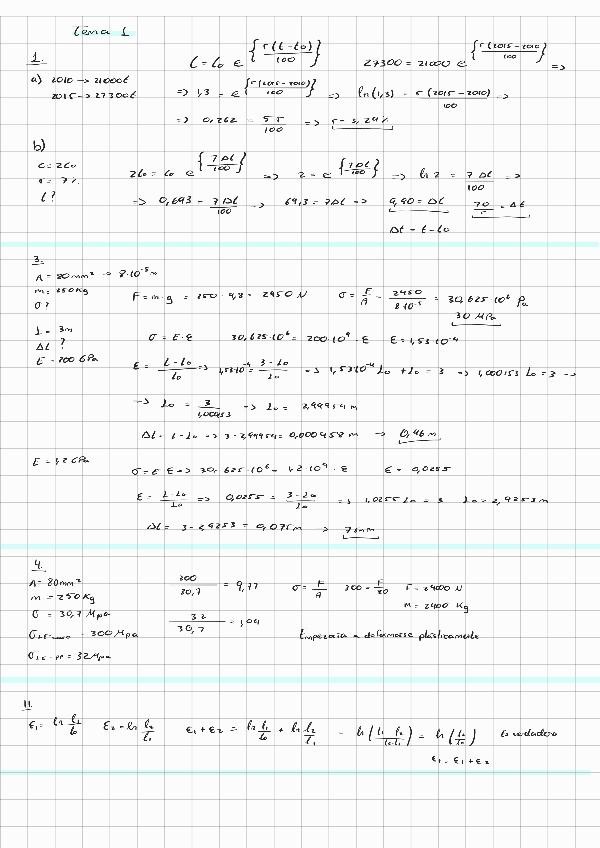 Tema 1
1.
C = C₀ e^{r(t-t₀)/100}   27300 = 21000 e^{r(2015-2010)/100} =>
a) 2010 → 21000t
2015 → 27300t
=> 1,3 = e^{r(2015-2010)/100} => ln(1,3) = r(2015-2010)/100 ->
=> 0,262 = 5r/100 => r = 5,24%
b)
C = 2C₀
r = 7%
t?
2C₀ = C₀ e^{7Δt/100} => 2 = e^{7Δt/100} -> ln 2 = 7Δt/100 ->
-> 0,693 = 7Δt/100 -> 69,3 = 7Δt -> 9,90 = Δt   70/r = Δt
Δt = t - t₀
3.
A = 80mm² → 8·10⁻⁵ m
m = 250Kg
σ?
F = m·g = 250 · 9,8 = 2450 N   σ = F/A = 2450/8·10⁻⁵ = 30,625·10⁶ Pa
30 MPa
L = 3m
ΔL ?
E = 200 GPa
σ = E·ε   30,625·10⁶ = 200·10⁹ · ε   ε = 1,53·10⁻⁴
ε = L-L₀/L₀ => 1,53·10⁻⁴ = 3-L₀/L₀ -> 1,53·10⁻⁴ L₀ + L₀ = 3 -> 1,000153 L₀ = 3 ->
-> L₀ = 3/1,000153 -> L₀ = 2,99954 m
ΔL = L-L₀ -> 3-2,99954 = 0,000458 m -> 0,46 m
E = 1,2 GPa
σ = E ε => 30,625·10⁶ = 1,2·10⁹ · ε   ε = 0,0255
ε = L-L₀/L₀ => 0,0255 = 3-L₀/L₀ => 1,0255 L₀ = 3   L₀ = 2,9253 m
ΔL = 3-2,9253 = 0,075m -> 75mm
4.
A = 80mm²
m = 250 Kg
σ = 30,7 Mpa
= 300 Mpa
= 32 Mpa
300/30,7 = 9,77   σ = F/A   300 = F/80   F = 24000 N
m = 2400 Kg
32/30,7 = 1,04   Empezaría a deformarse plásticamente
11.
ε₁ = ln l₁/l₀   ε₂ = ln l₂/l₁   ε₁ + ε₂ = ln l₁/l₀ + ln l₂/l₁ = ln(l₁·l₂/l₀·l₁) = ln(l₂/l₀)   Es verdadero
ε₁ = ε₁ + ε₂